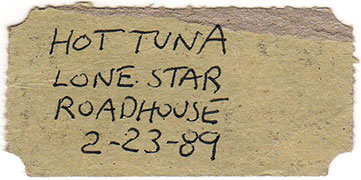 HOT TUNA
LONE STAR
ROADHOUSE
2-23-89